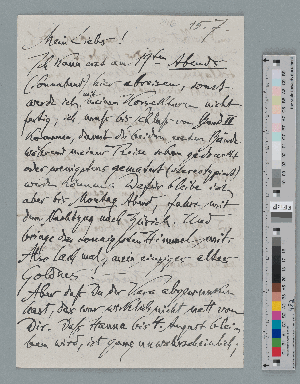 15.7.
Mein Liebs!
Ich kann erst am 19ten Abends
(Sonnabend) hier abreisen, sonst
werde ich mit meinen Korrekturen nicht
fertig; ich muß bis Schluß von Band II
kommen, damit die beiden ersten Bände
während meiner Reise schon gedruckt
oder wenigstens gematert (stereotypiert)
werden können. Dafür bleibe ich
aber bis Montag Abend, fahre mit
dem Nachtzug nach Zürich. Und
bringe den Himmel mit.
Also lach mal, mein einziger alter
Goldnes
Aber daß Du der Vera abgewunken
hast, das war wirklich nicht nett von
Dir. Daß Hanna bis 4. August blei-
ben wird, ist ganz unwahrscheinlich,